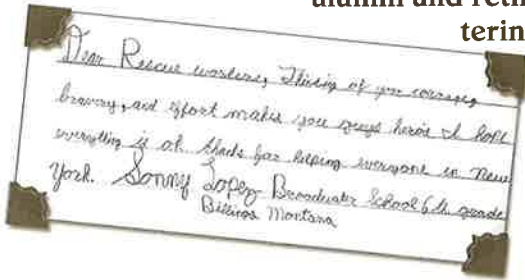 alumni and reti
terin
Dear Rescue workers, Thining of you courage,
bravery, and effort makes you guys heroe I hope
everything is ok thanks for helping everyone in New
York. Sonny Lopez Broadwater School 6th grade
Billings Montana